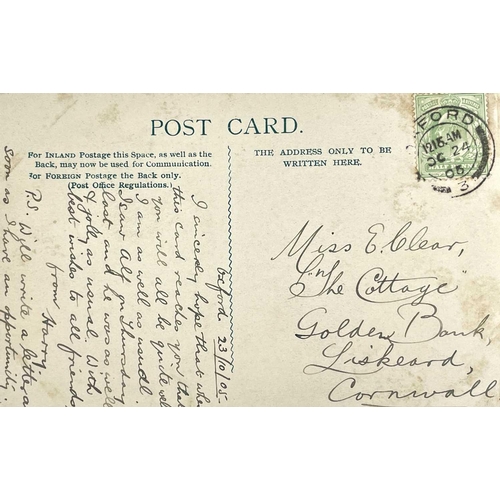 POST CARD.
FOR INLAND Postage this Space, as well as the
Back, may now be used for Communication.
FOR FOREIGN Postage the Back only.
(Post Office Regulations.)
THE ADDRESS ONLY TO BE
WRITTEN HERE.
FORD
12.15 AM
OC 24
05
3
HALF PENNY
Miss E. Clear,
"The Cottage"
Golden Bank,
Liskeard,
Cornwall.
23/10/05
I sincerely hope that when
this card reaches you that
you will all be quite well
I am as well as usual.
I saw Alf on Thursday
last and he was as well
& jolly as usual. With
best wishes to all friends
from Harry.
P.S. Will write a letter as
soon as I have an opportunity.